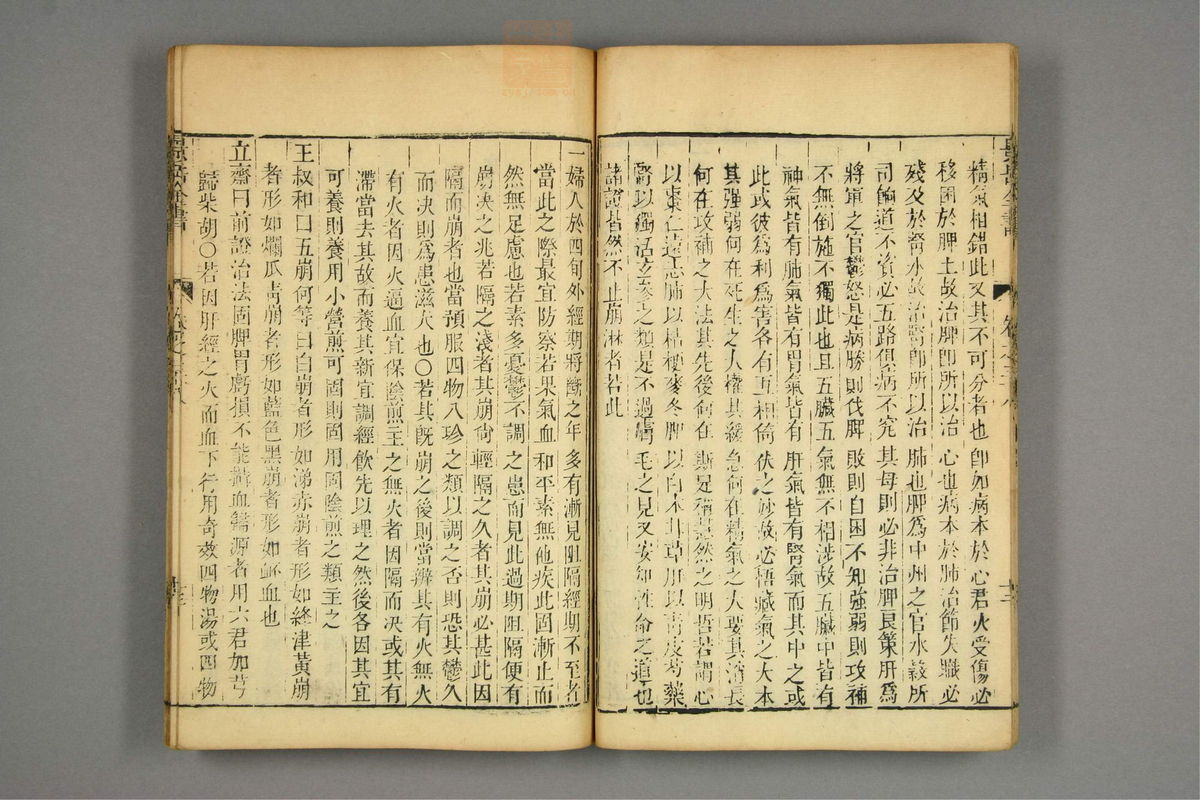 精氣相錯此又其不可分者也卽如病本於心君火受傷必
移困於脾土故治脾卽所以治心也病本於肺治節失職必
殘及於腎水故治腎卽所以治肺也脾爲中州之官水穀所
司飾道不資必五路俱病不究其母則必非治脾良策肝爲
將軍之官鬱怒是病勝則伐脾敗則自困不知強弱則攻補
不無倒施不獨此也且五臟五氣無不相涉故五臟中皆有
神氣皆有肺氣皆有胃氣皆有肝氣皆有腎氣而其中之或
此或彼爲利爲害各有互相倚伏之妙故必悟臟氣之大本
其強弱何在死生之大權其緩急何在精氣之大要其消長
何在攻補之大法其先後何在斯足稱慧然之明哲若謂心
以棗仁遠志肺以桔梗麥冬脾以白朮甘草肝以靑皮芍藥
腎以獨活玄參之類是不過膚毛之見又安知性命之道也
諸證皆然不止崩淋者若此
一婦人於四旬外經期將斷之年多有漸見阻隔經期不至者
當此之際最宜防察若果氣血和平素無他疾此固漸止而
然無足慮也若素多憂鬱不調之患而見此過期阻隔便有
崩决之兆若隔之淺者其崩尙輕隔之久者其崩必甚此因
隔而崩者也當預服四物八珍之類以調之否則恐其鬱久
而决則爲患滋大也〇若其旣崩之後則當辨其有火無火
有火者因火逼血宜保陰煎主之無火者因隔而决或其有
滯當去其故而養其新宜調經飮先以理之然後各因其宜
可養則養用小營煎可固則固用固陰煎之類主之
王叔和曰五崩何等曰白崩者形如涕赤崩者形如絳津黃崩
者形如爛瓜靑崩者形如藍色黑崩者形如衃血也
立齋曰前證治法因脾胃虧損不能攝血歸源者用六君加芎
歸柴胡〇若因肝經之火而血下行用奇效四物湯或四物